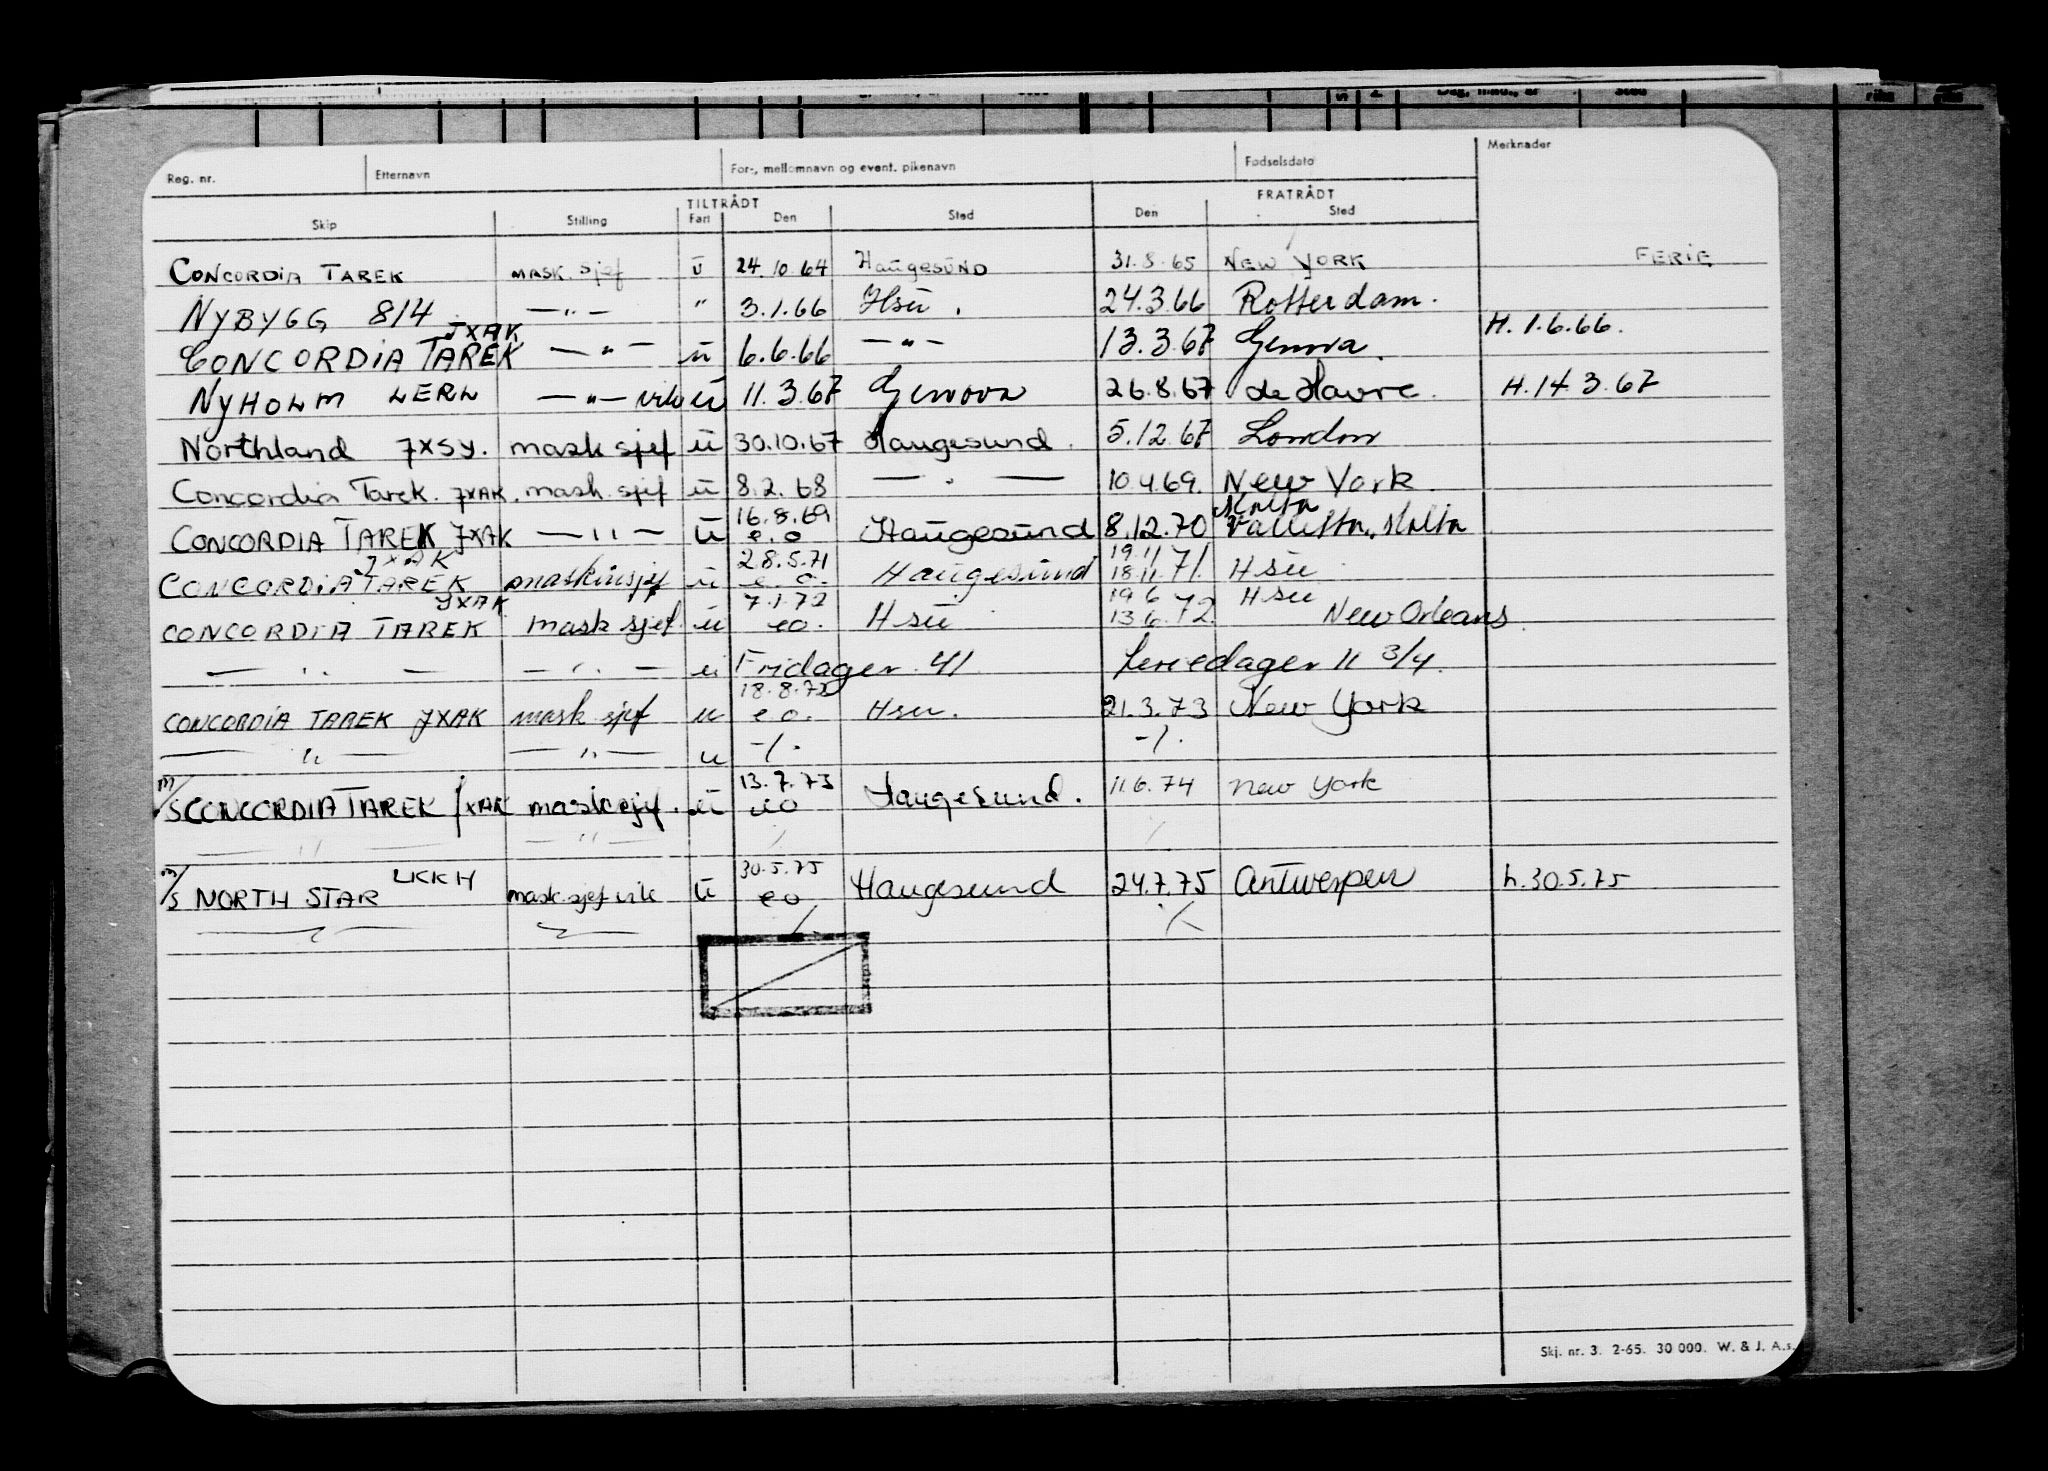 Reg. nr. Etternavn For-, mellomnavn og event. pikenavn Fødselsdato Merknader
TILTRÅDT FRATRÅDT
Skip Stilling Fart Den Sted Den Sted
CONCORDIA TAREK MASK. sjef ū 24.10.64 HaugesūND 31.8.65 NEW YORK FERIE
NYBYGG 814 —"— " 3.1.66 Hsū. 24.3.66 Rotterdam.
JXAK H. 1.6.66.
CONCORDIA TAREK —"— ū 6.6.66 —"— 13.3.67 Genova.
NYHOLM LERL —"— vik ū 11.3.67 Genova 26.8.67 Le Havre. H. 14.3.67
Northland JXSY. mask sjef ū 30.10.67 Haugesund. 5.12.67 London
Concordia Tarek. JXAK. mask. sjef ū 8.2.68 — " — 10.4.69. New York.
16.8.69 Malta
CONCORDIA TAREK JXAK —"— ū e.o Haugesūnd 8.12.70 Valletta, Malta
JXAK 28.5.71 19.11
CONCORDIA TAREK maskinsjef ū e.o. Haugesund 18.11.71. Hsū
JXAK 7.1.72 19.6 Hsū
CONCORDIA TAREK mask sjef ū eo. Hsū 13.6.72. New Orleans.
—"— —"— ū Fridager 41 feriedager 11 3/4.
18.8.72
CONCORDIA TAREK JXAK mask sjef u e.o. Hsu. 21.3.73 New York
—"— —"— u -/. -/.
13.7.73
M/S CONCORDIA TAREK JXAK mask sjef. ū eo Haugesund. 11.6.74 New York
—"— —"— / /
LKKH 30.5.75
M/S NORTH STAR mask. sjef vik ū eo Haugesund 24.7.75 Antwerpen h. 30.5.75
Skj. nr. 3. 2-65. 30 000. W. & J. A.s.